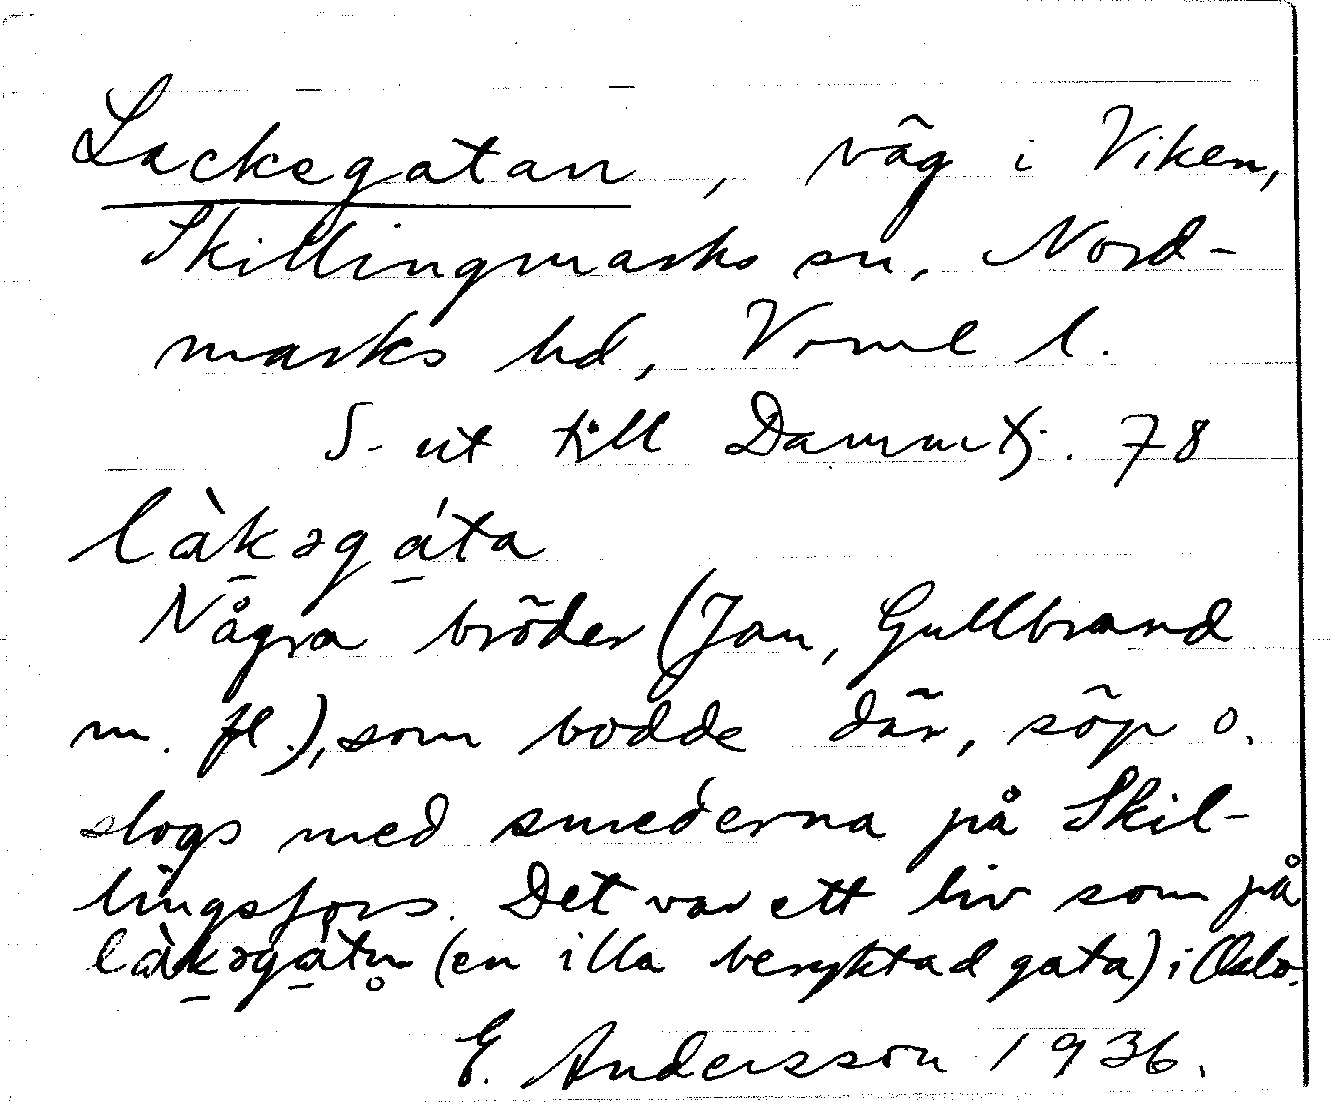 Lackegatan, väg i Viken,
Skillingmarks sn, Nord-
marks hd, Verml l.
S. ut till Dammtj. 78
làk̠əgá̠ta
Några bröder (Jan, Gullbrand
m. fl.), som bodde där, söp o.
slogs med smederna på Skil-
lingsfors. Det var ett liv som på
làk̠əgá̠tn̥ (en illa beryktad gata) i Oslo.
E. Andersson 1936.